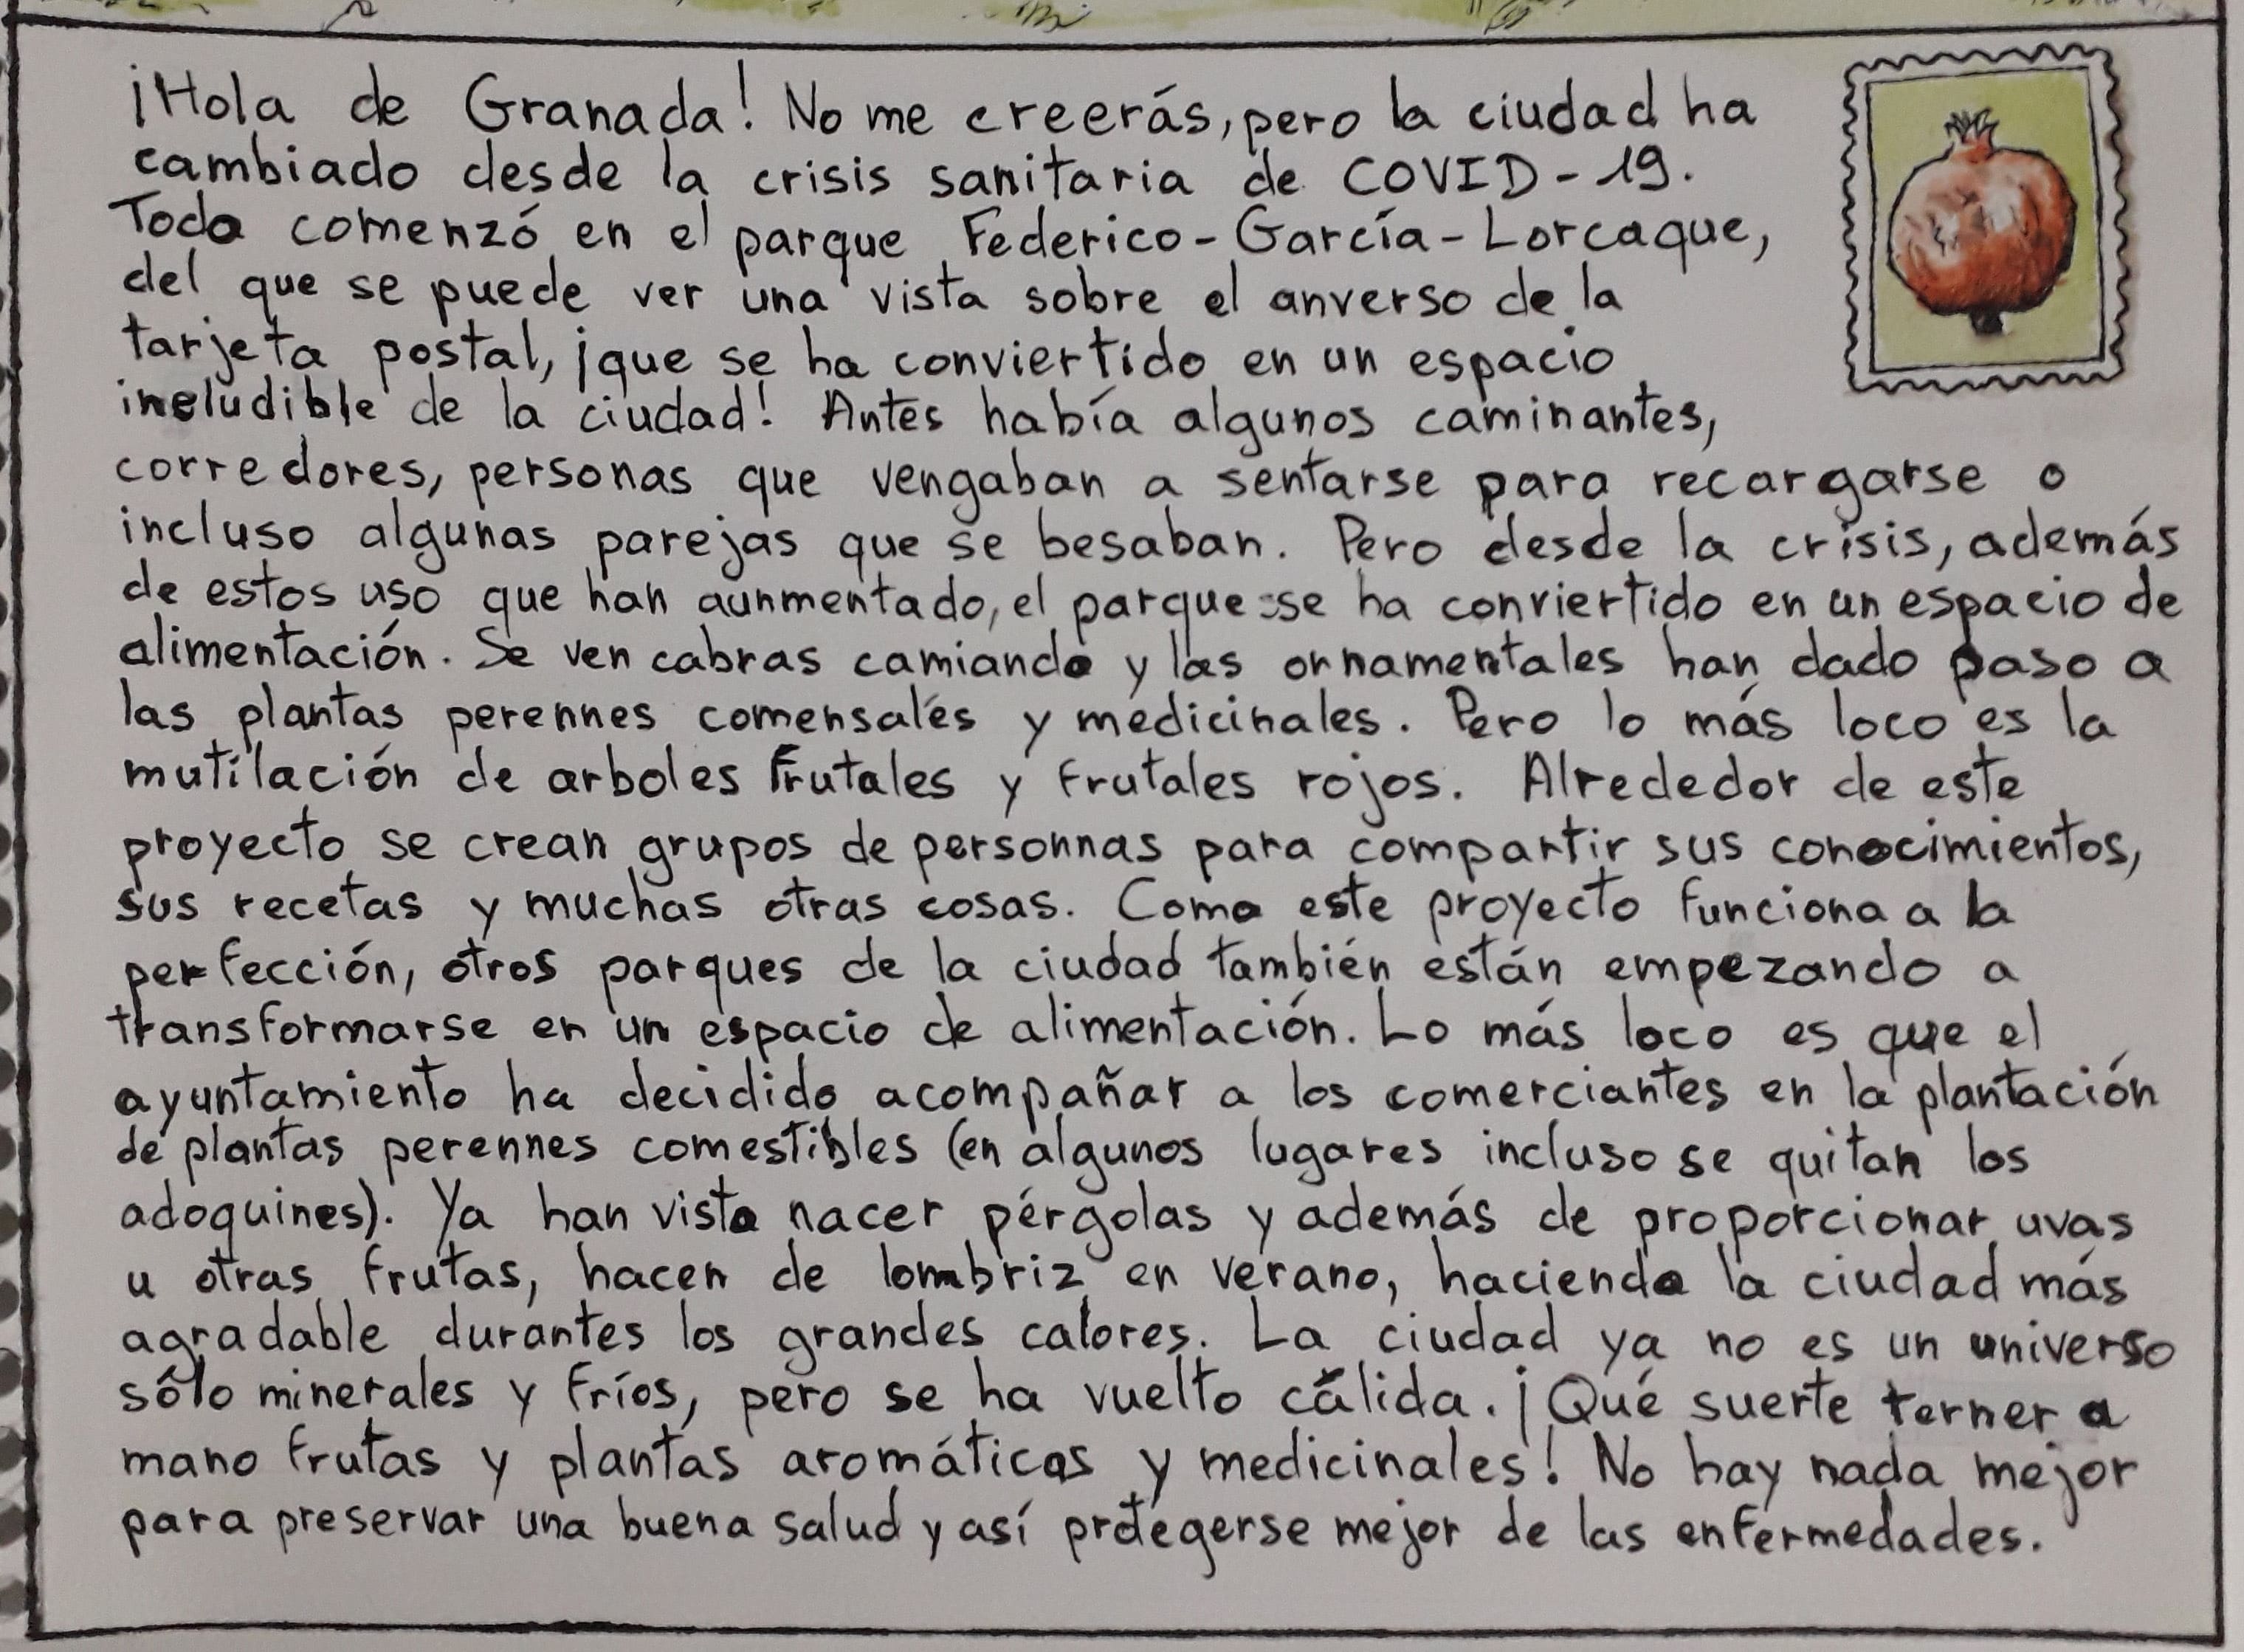 ¡Hola de Granada! No me creerás, pero la ciudad ha
cambiado desde la crisis sanitaria de COVID-19.
Todo comenzó en el parque Federico-García-Lorcaque,
del que se puede ver una vista sobre el anverso de la
tarjeta postal, ¡que se ha conviertido en un espacio
ineludible de la ciudad! Antes había algunos caminantes,
corredores, personas que vengaban a sentarse para recargarse o
incluso algunas parejas que se besaban. Pero desde la crisis, además
de estos uso que han aunmentado, el parque se ha conviertido en un espacio de
alimentación. Se ven cabras camiando y las ornamentales han dado paso a
las plantas perennes comensales y medicinales. Pero lo más loco es la
mutilación de arboles frutales y frutales rojos. Alrededor de este
proyecto se crean grupos de personnas para compartir sus conocimientos,
sus recetas y muchas otras cosas. Como este proyecto funciona a la
perfección, otros parques de la ciudad también están empezando a
transformarse en un espacio de alimentación. Lo más loco es que el
ayuntamiento ha decidido acompañar a los comerciantes en la plantación
de plantas perennes comestibles (en algunos lugares incluso se quitan los
adoquines). Ya han visto nacer pérgolas y además de proporcionar uvas
u otras frutas, hacen de lombriz en verano, haciendo la ciudad más
agradable durantes los grandes calores. La ciudad ya no es un universo
sólo minerales y fríos, pero se ha vuelto cálida. ¡Qué suerte terner a
mano frutas y plantas aromáticas y medicinales! No hay nada mejor
para preservar una buena salud y así protegerse mejor de las enfermedades.